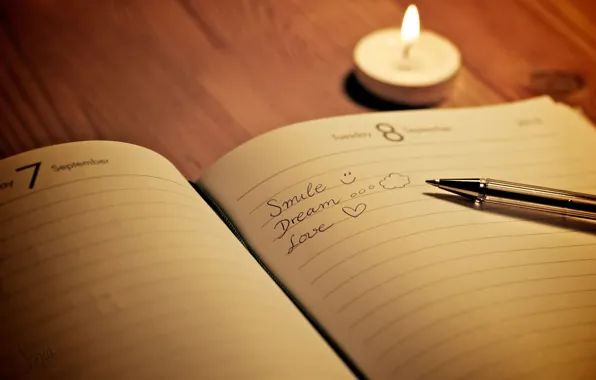 7 September
Tuesday 8 September
Smile
Dream
Love